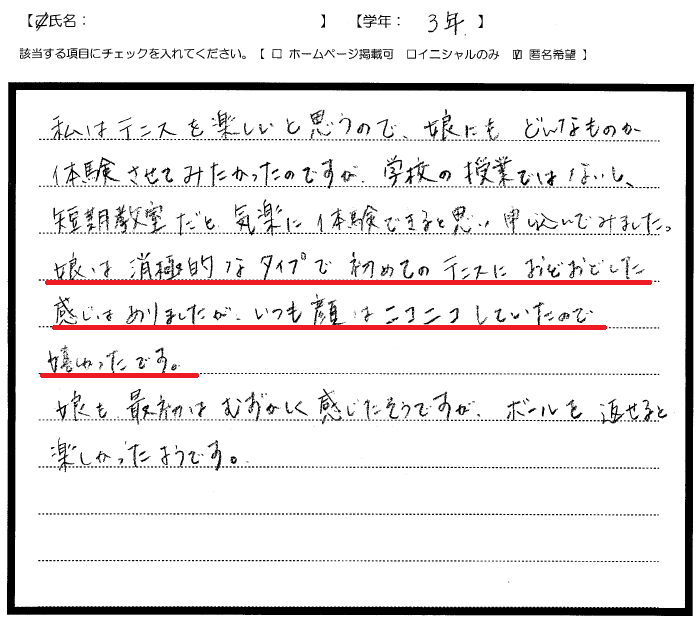 【氏名： 】 【学年： 3年 】
該当する項目にチェックを入れてください。【 □ ホームページ掲載可 □イニシャルのみ ☑ 匿名希望 】
私はテニスを楽しいと思うので、娘にも どんなものか
体験させてみたかったのですが、学校の授業ではないし、
短期教室だと 気楽に体験できると思い 申し込んでみました。
娘は 消極的なタイプで 初めてのテニスに おどおどした
感じはありましたが、いつも顔はニコニコしていたので
嬉しかったです。
娘も 最初は むずかしく感じたそうですが、ボールを 返せると
楽しかったようです。